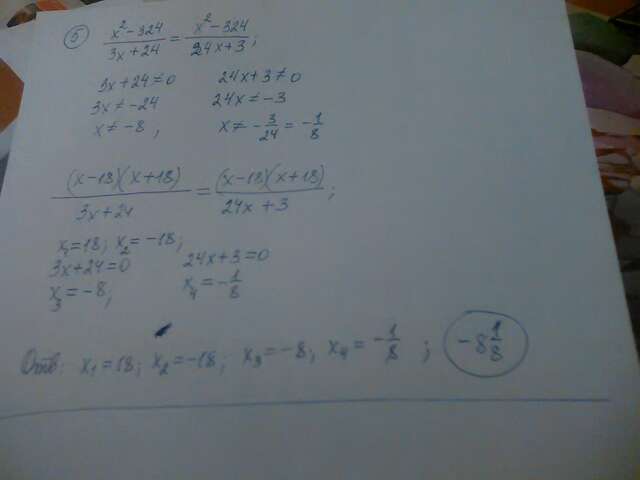 5 x²-324/3x+24 = x²-324/24x+3;
3x+24≠0 24x+3≠0
3x≠-24 24x≠-3
x≠-8, x≠-3/24=-1/8
(x-18)(x+18)/3x+24 = (x-18)(x+18)/24x+3;
x₁=18; x₂=-18;
3x+24=0 24x+3=0
x₃=-8; x₄=-1/8
Отв: x₁=18; x₂=-18; x₃=-8; x₄=-1/8; -8 1/8